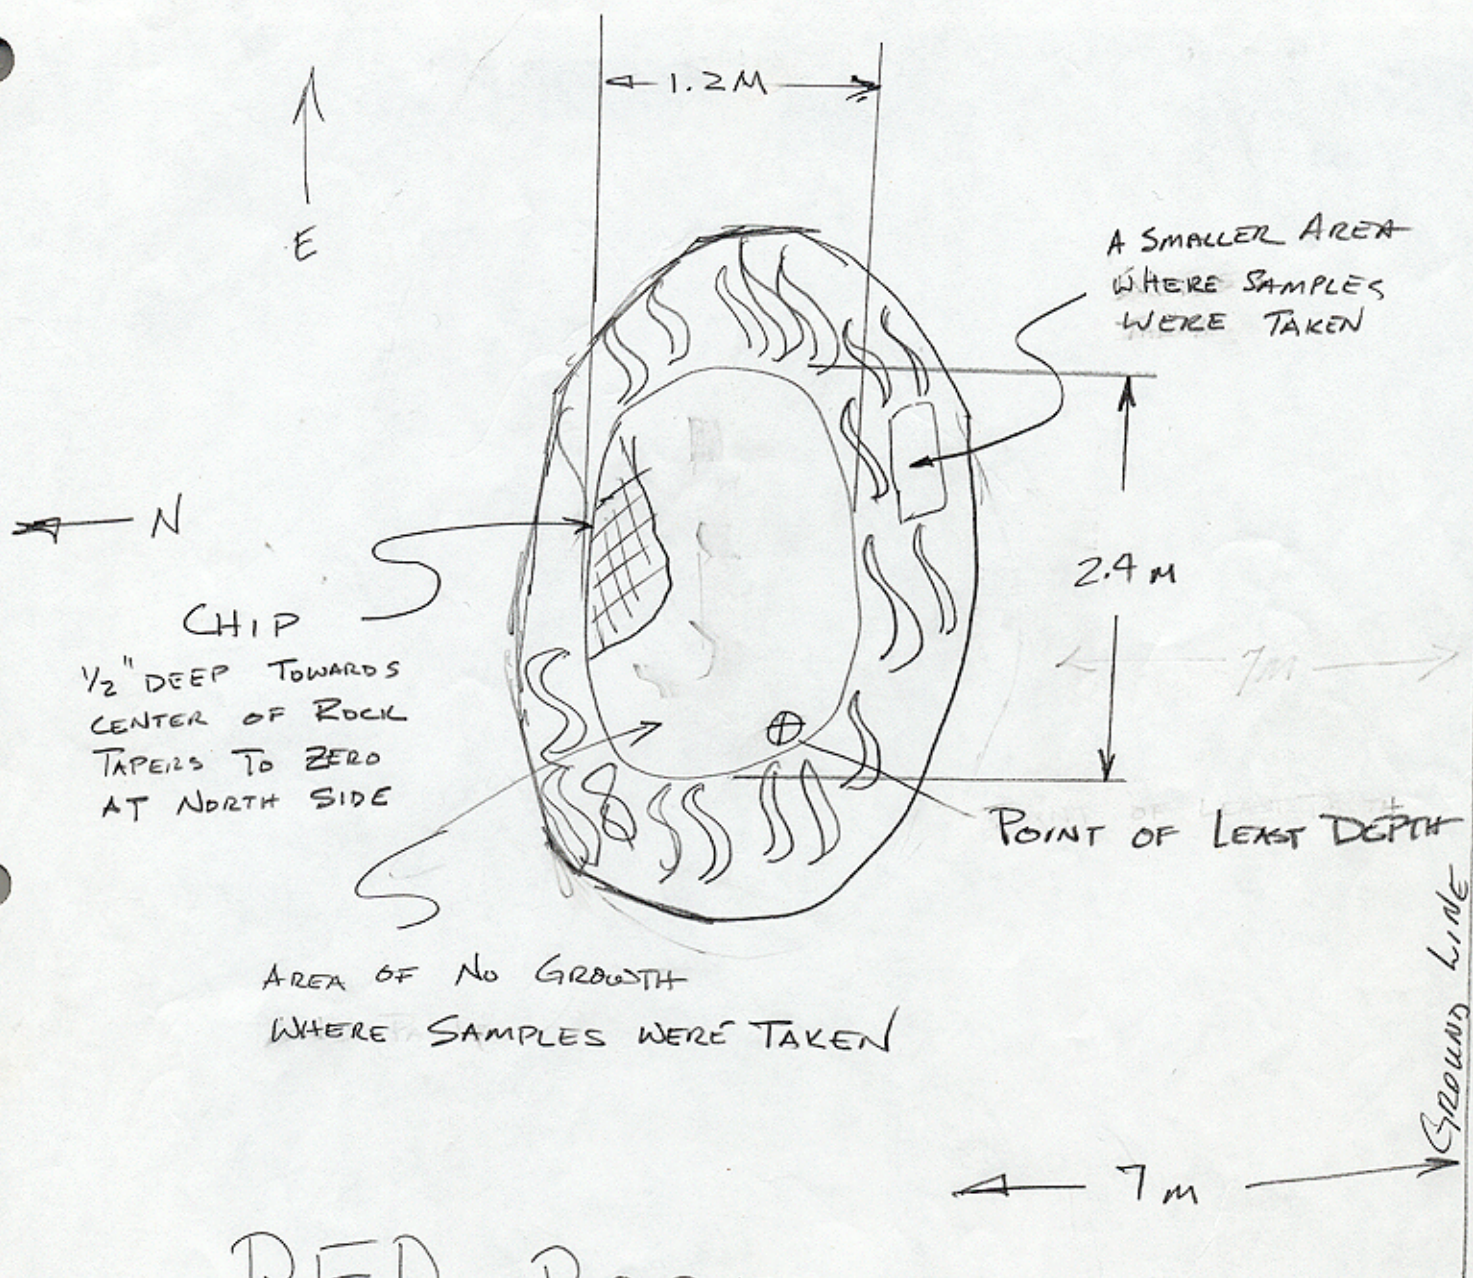 1.2 M
E
A SMALLER AREA
WHERE SAMPLES
WERE TAKEN
N
2.4 M
CHIP
1/2" DEEP TOWARDS
CENTER OF ROCK
TAPERS TO ZERO
AT NORTH SIDE
7m
POINT OF LEAST DEPTH
AREA OF NO GROWTH
WHERE SAMPLES WERE TAKEN
GROUND LINE
7 m
RED